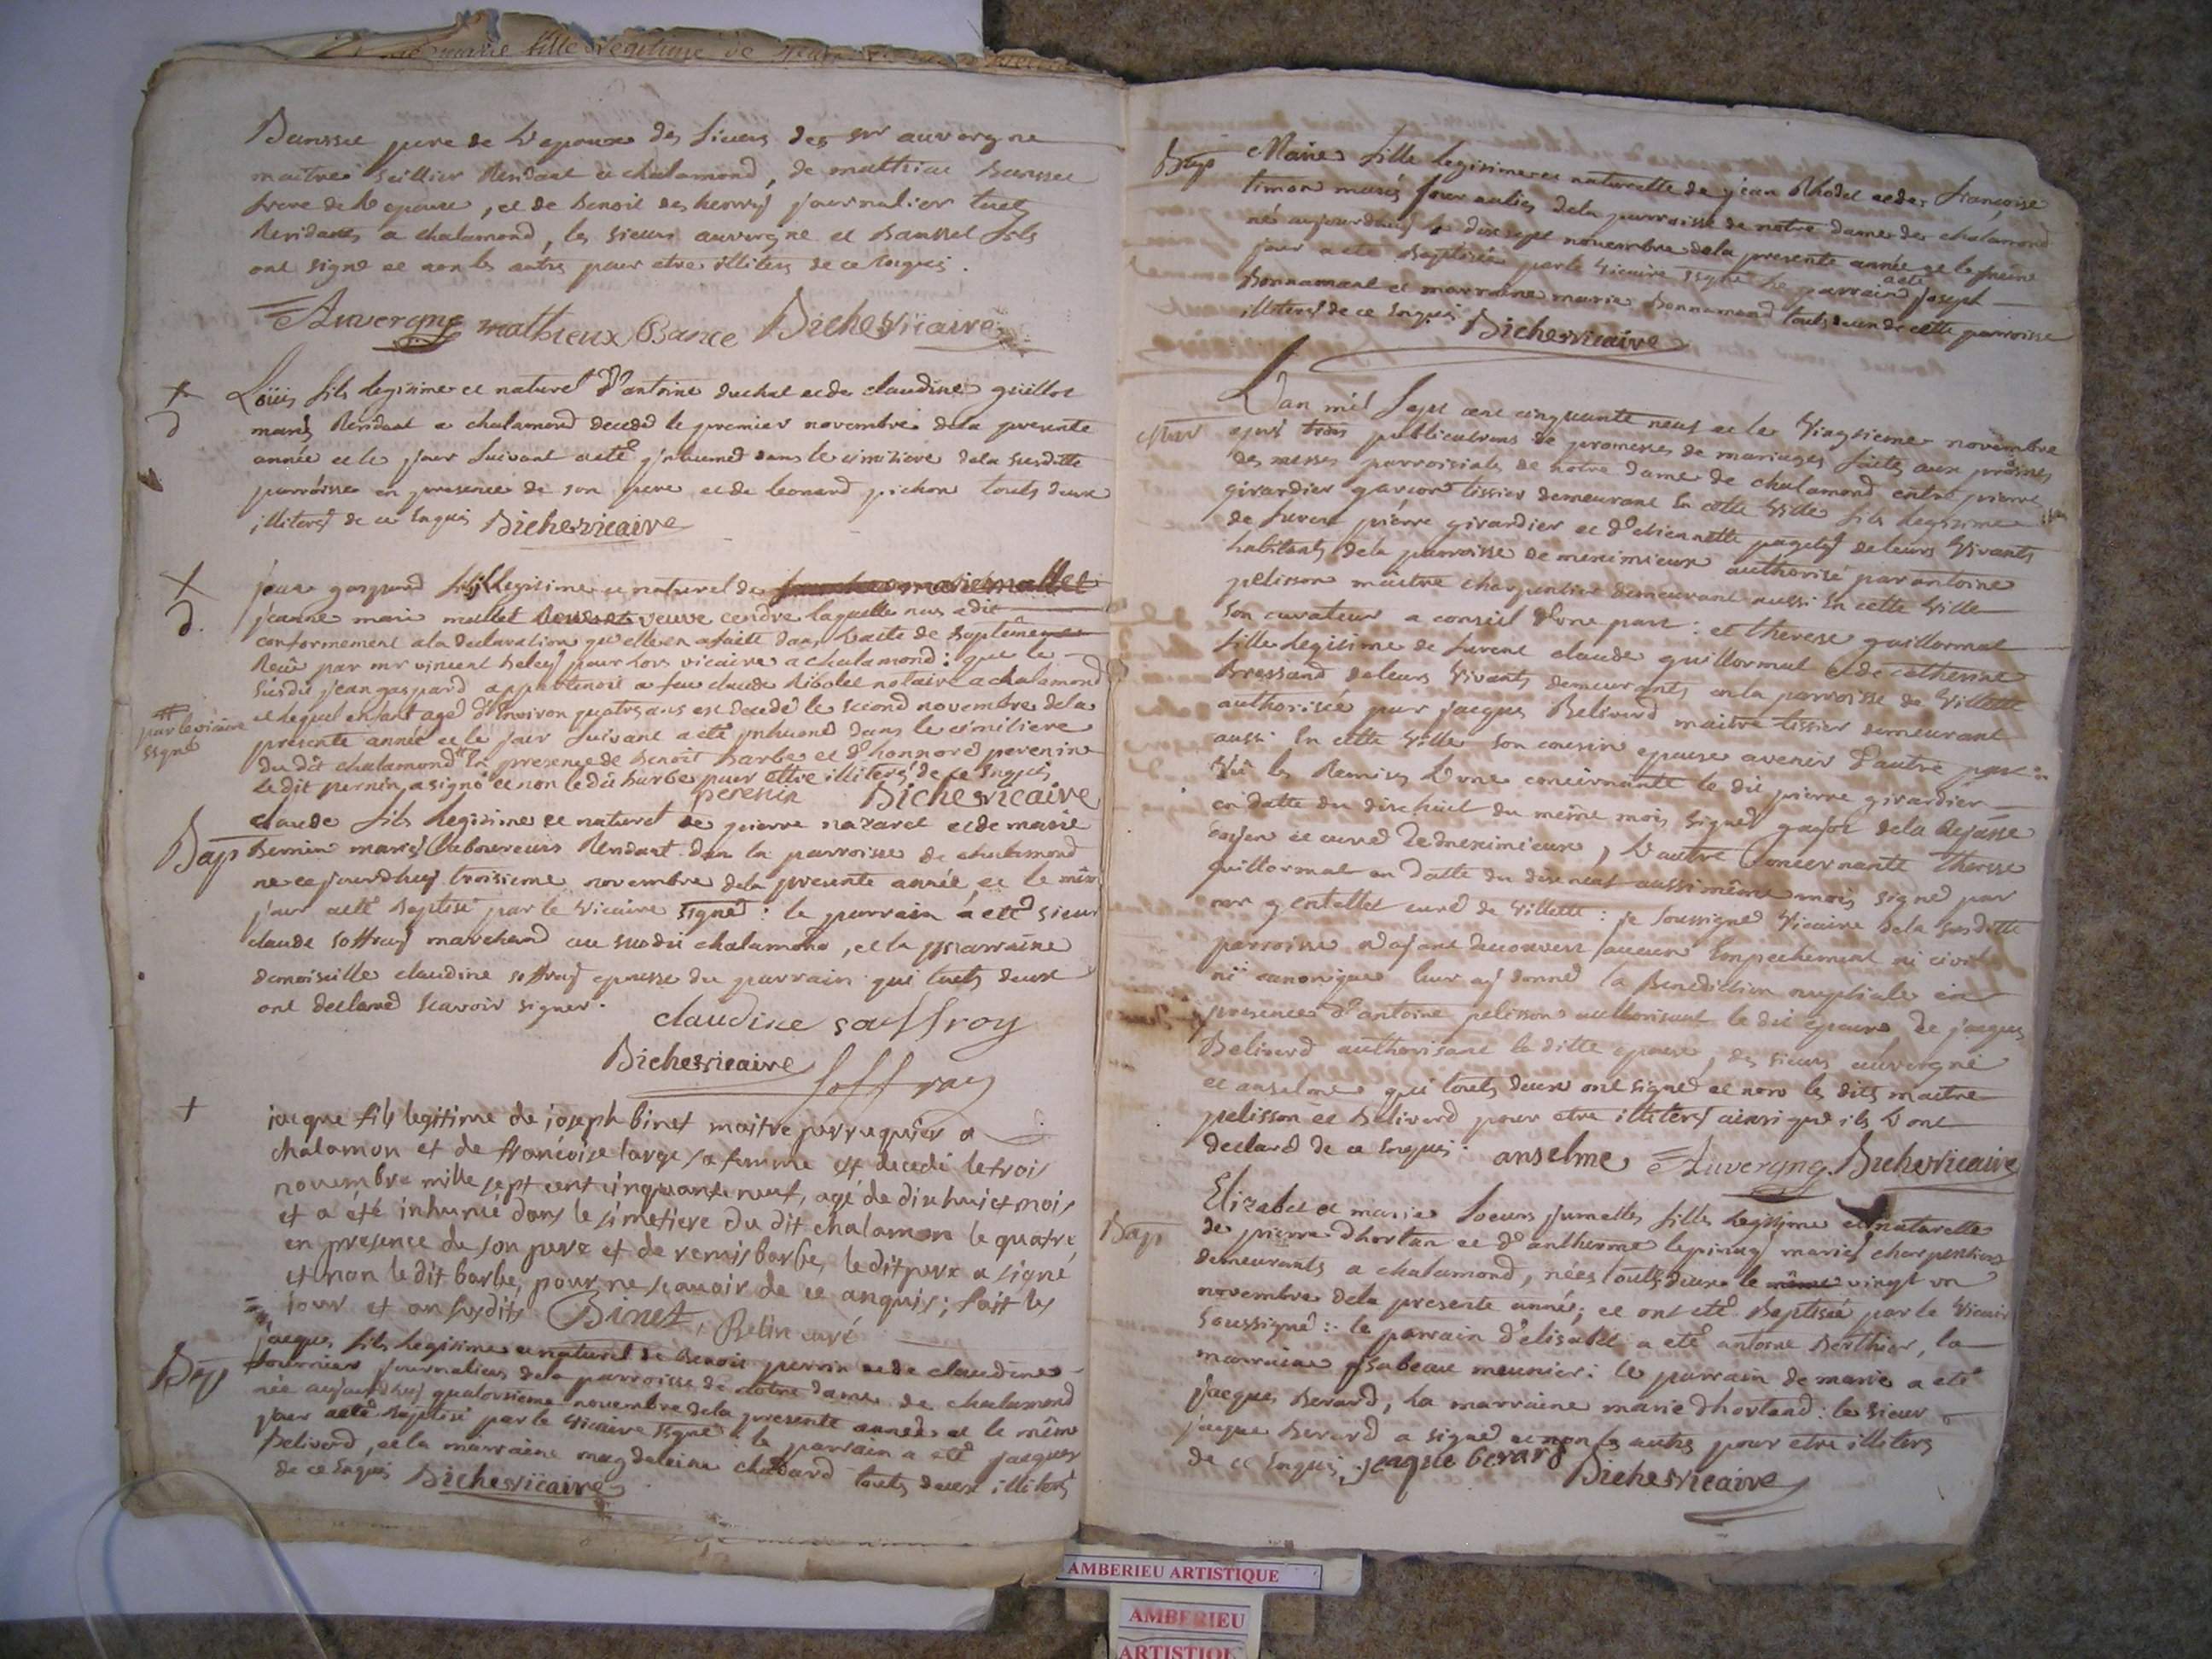 marie fille legitime de
Banssel pere de L'epouse des sieurs des sr auvergne
maitre sellier Residant a chalamond, de mathieu banssel
frere de l'epouse, et de benoit des henry journalier touts
Residants a chalamond, les sieurs auvergne et Banssel fils
ont signé et non les autres pour etre illiters de ce Enquis.
Auvergne mathieux Bance Biche vicaire
+ Loüis fils legitime et naturel d'antoine duchat et de claudine guillot
d mariés Residant a chalamond decedé le premier novembre dela presente
année et le jour suivant a eté jnhumed dans le cimitiere dela susditte
parroisse en presence de son pere et de leonard pichon touts deux
illiters de ce Enquis Biche vicaire
+ jean gaspard fils Legitime et naturel de
d. jeanne marie mallet veuve cendre laquelle nous a dit
conformement a la declaration qu'elle en a faitte dans l'acte de Baptême
Recû par mr vincent Beley pour lors vicaire a chalamond: que le
susdit jean gaspard appartenoit a feu claude Ribolet notaire a chalamond
et lequel enfant aged d'Environ quatre ans est decedé le second novembre dela
# par le vicaire signé
presente année et le jour suivant a eté jnhumed dans le cimitiere
du dit chalamond # En presence de Benoit barbe et d'honnord perenin
le dit pernin a signé et non le dit barbe pour ettre illiters de ce Enquis
perenin Biche vicaire
Bap claude fils legitime et naturel de pierre nazaret et de marie
Bernin mariés laboureurs Residant dan la parroisse de chalamond
ne cejourdhuy troisieme novembre dela presente année et le même
jour a eté Baptisé par le vicaire signed: le parrain a eté sieur
claude soffray marchand au susdit chalamond, et la marraine
demoiselle claudine soffray epousse du parrain qui touts deux
ont declared scavoir signer.
claudine souffroy
Biche vicaire soffray
+ jacque fils legitime de joseph binet maitre perruquier a
chalamon et de françoise large sa femme est decedé le trois
novembre mille sept cent cinquante neuf, agé de dix huict mois
et a été inhumé dans le simetiere du dit chalamon le quatre
en presence de son pere et de remis barbe, le dit pere a signé
et non le dit barbe, pour ne scavoir de ce anquis; fait les
jour et an susdits Binet, Belin curé
Bap jacques fils legitime et naturel de Benoit perrin et de claudine
fournier journaliers dela parroisse de notre dame de chalamond
née aujourdhuy quatorsieme novembre dela presente année et le même
jour a eté Baptisé par le vicaire signé le parrain a eté jacques
Beliverd, et la marraine magdelaine chabard touts deux illiters
de ce Enquis Biche vicaire
Bap Marie fille legitime et naturelle de jean Rhodet et de françoise
timon mariés journaliers dela parroisse de notre dame de chalamond
né aujourdhuy le dixsept novembre dela presente année et le même
jour a eté Baptisée par le vicaire signé le parrain a eté joseph
Bonnamand et marraine marie Bonnamand touts deux de cette parroisse
illiters de ce Enquis Biche vicaire
L'an mil sept cent cinquante neuf et le vingtieme novembre
Mar apres trois publications de promesses de mariages faites aux prônes
des messes parroissiales de notre dame de chalamond entre pierre
girardier garcon tissier demeurant En cette ville fils legitime
de furent pierre girardier et d'etiennette pagety de leurs vivants
habitants dela parroisse de meximieux authorisé par antoine
pelisson maitre charpentier demeurant aussi En cette ville
son curateur a conseil d'une part: et therese guillormat
fille legitime de furent claude guillormat et de catherine
Bressand de leurs vivants demeurants en la parroisse de villette
authorisée par jacques Beliverd maitre tissier demeurant
aussi En cette ville son cousin epouse avenir d'autre part:
Vû les Remises L'une concernante le dit pierre girardier
en datte du dixhuit du meme mois signed gayot dela Rejasse
doyen et cured de meximieux, L'autre concernante therese
guillormat en datte du dixneuf aussi même mois signed par
mr gentellet cured de villette: je soussigned vicaire dela susditte
parroisse n'ayant decouvert aucun Empechement ni civil
ni canonique leur ay donned la Benediction nuptiale en
presence d'antoine pelisson authorisant le dit epoux de jacques
Beliverd authorisant la ditte epouse, des sieurs auvergne
et anselme qui touts deux ont signed et non les dits maitre
pelisson et Beliverd pour etre illiters ainsi que ils L'ont
declared de ce Enquis. anselme Auvergne Biche vicaire
Bap Elizabet et marie soeurs jumelles filles legitime et naturelle
de pierre dhortan et d'antherme lepinay mariés charpentiers
demeurants a chalamond, nées touts deux le même vingt un
novembre dela presente année; et ont eté Baptisée par le vicaire
soussigné: le parrain d'elisabet a eté antoine Berthier, la
marraine jsabeau meunier: le parrain de marie a eté
jacques Berard, la marraine marie dhortand: le sieur
jacque Berard a signed et non les autres pour etre illiters
de ce Enquis. jacque berard Biche vicaire
AMBERIEU ARTISTIQUE
AMBERIEU
ARTISTIQUE